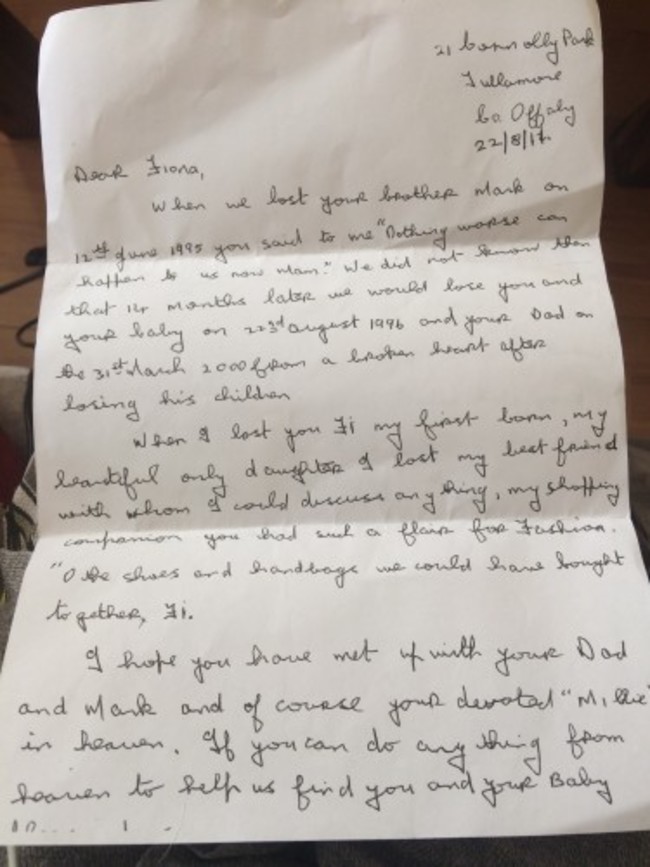 21 Connolly Park
Tullamore
Co. Offaly
22/8/17.
Dear Fiona,
When we lost your brother Mark on
12th June 1995 you said to me "Nothing worse can
happen to us now Mam." We did not know then
that 14 months later we would lose you and
your baby on 22rd August 1996 and your Dad on
the 31st March 2000 from a broken heart after
losing his children
When I lost you Fi my first born, my
beautiful only daughter I lost my best friend
with whom I could discuss any thing, my shopping
companion you had such a flair for Fashion.
"O the shoes and handbags we could have bought
together, Fi.
I hope you have met up with your Dad
and Mark and of course your devoted "Millie"
in heaven. If you can do any thing from
heaven to help us find you and your Baby